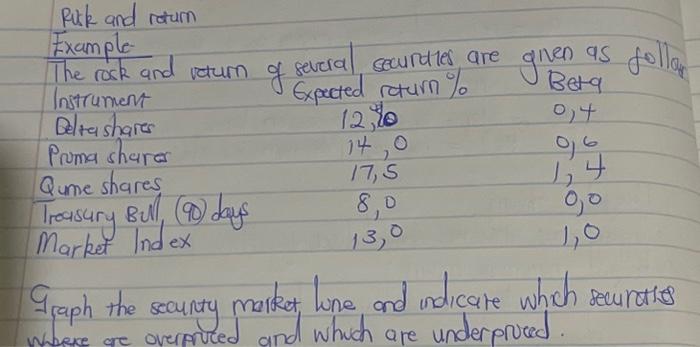 Risk and return
Example
The risk and return of several securities are given as follow
Instrument Expected return % Beta
Delta shares 12,0 0,4
Proma shares 14,0 0,6
Qume shares 17,5 1,4
Treasury Bill, (90) days 8,0 0,0
Market Index 13,0 1,0
Graph the security market line and indicate which securities
where are overpriced and which are underpriced.